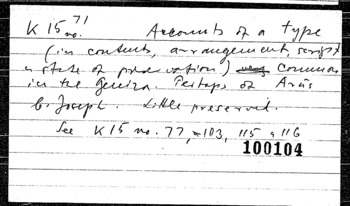 K 15 no. 71 Accounts of a type
(in contents, arrangement, script
& state of preservation) common
in the Geniza. Perhaps of Aris
b. Joseph. Little preserved.
See K 15 no. 77, 103, 115 & 116
100104